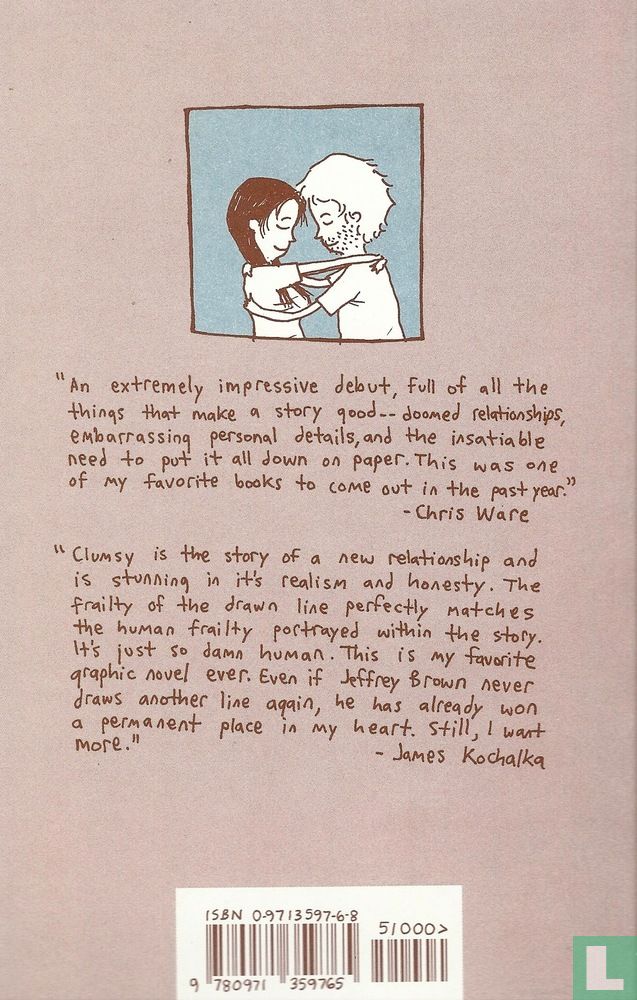 "An extremely impressive debut, full of all the
things that make a story good--doomed relationships,
embarrassing personal details, and the insatiable
need to put it all down on paper. This was one
of my favorite books to come out in the past year."
-Chris Ware
"Clumsy is the story of a new relationship and
is stunning in it's realism and honesty. The
frailty of the drawn line perfectly matches
the human frailty portrayed within the story.
It's just so damn human. This is my favorite
graphic novel ever. Even if Jeffrey Brown never
draws another line again, he has already won
a permanent place in my heart. Still, I want
more."
- James Kochalka
ISBN 0-9713597-6-8
51000>
9 780971 359765
L